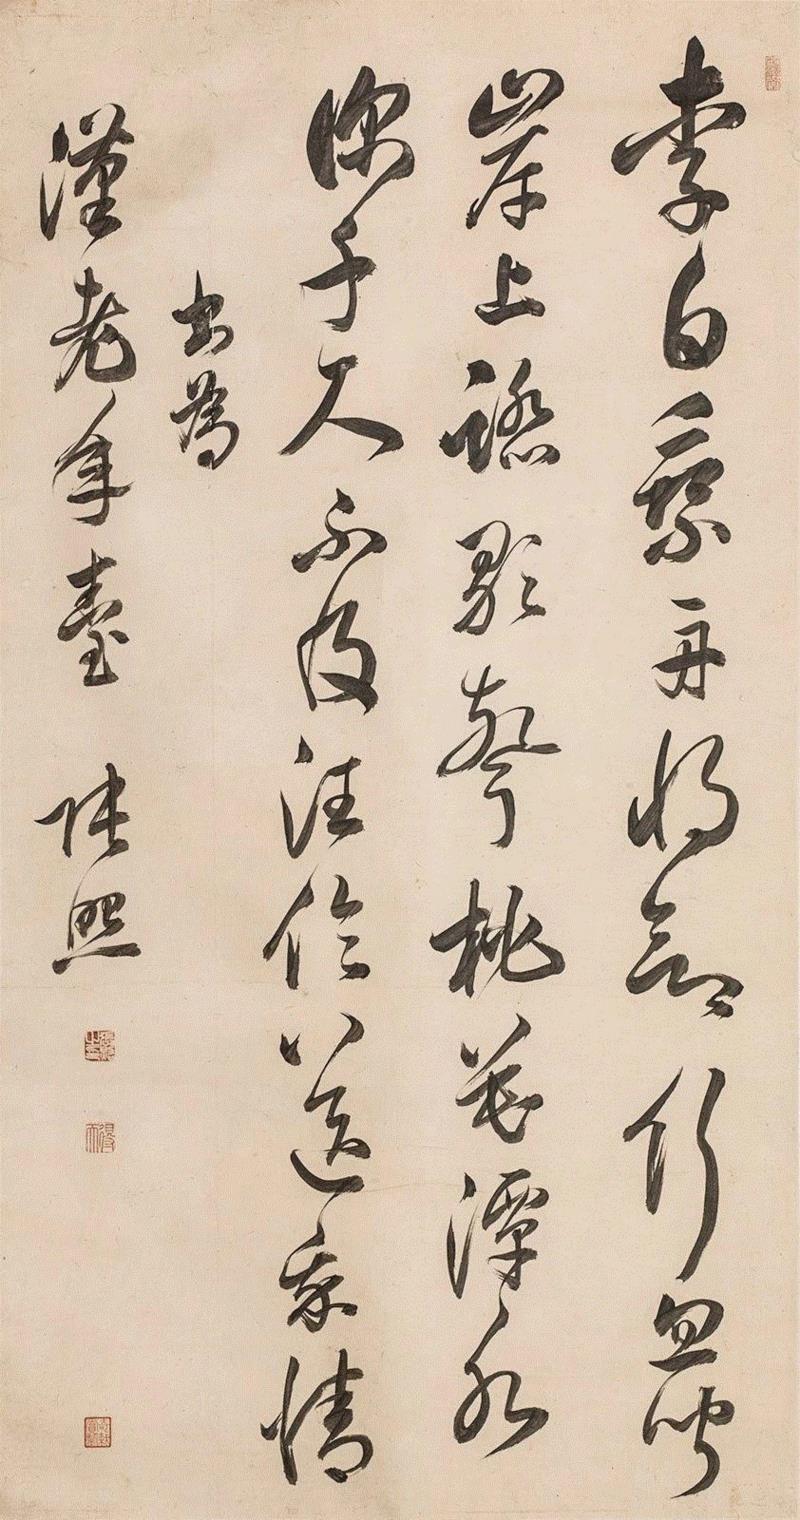 李白乘舟將欲行忽聞
岸上踏歌聲桃花潭水
深千尺不及汪倫送我情
書為
漢老年臺 張照